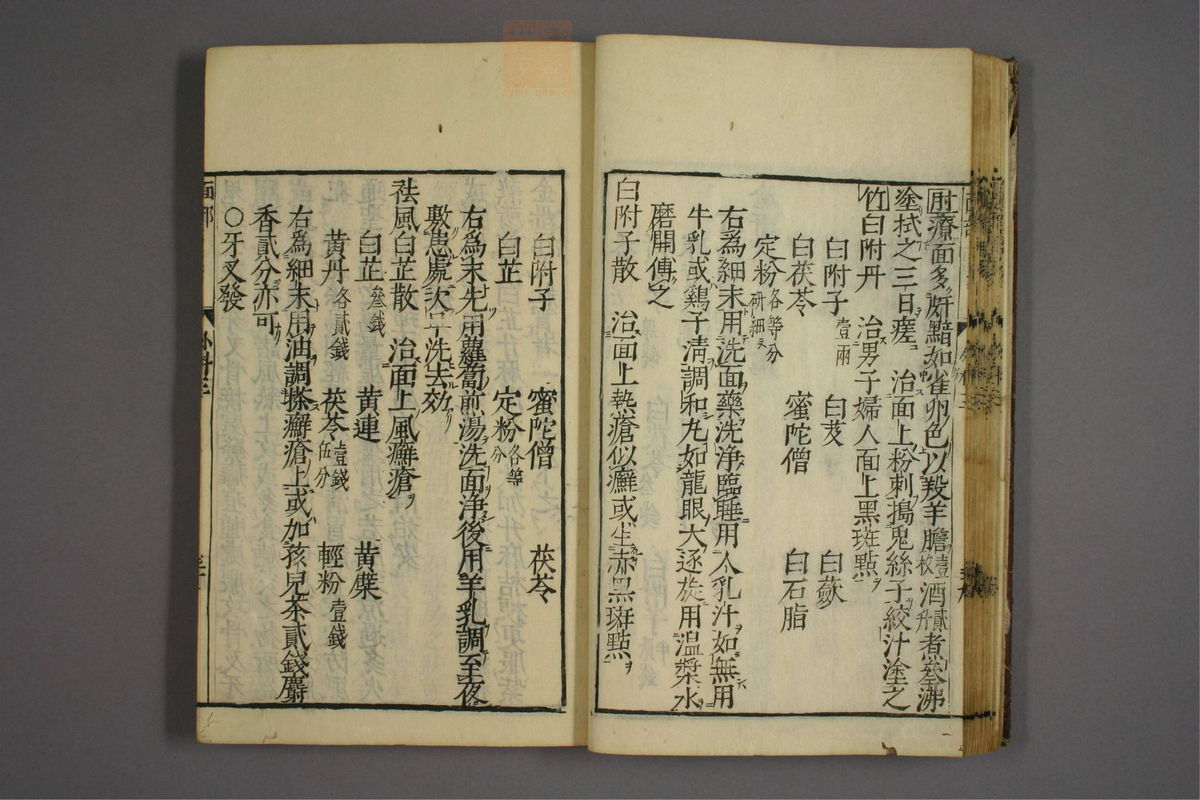 肘療面多䵟黯如雀卵色以羖羊膽壹枚酒貳升煮叄沸
塗拭之三日瘥 治面上粉刺搗兎絲子絞汁塗之
竹白附丹 治男子婦人面上黑斑點
白附子壹兩 白芨 白蘞
白茯苓 蜜陀僧 白石脂
定粉各等分研細
右爲細末用洗面藥洗净臨睡用人乳汁如無用
牛乳或鷄子清調和丸如龍眼大逐旋用温漿水
磨開傅之
白附子散 治面上熱瘡似癬或生赤黑斑點
白附子 蜜陀僧 茯苓
白芷 定粉各等分
右爲末先用蘿蔔煎湯洗面净後用羊乳調至夜
敷患處次早洗去効
祛風白芷散 治面上風癬瘡
白芷叄錢 黄連 黄蘗
黄丹各貳錢 茯苓壹錢伍分 輕粉壹錢
右爲細末用油調搽癬瘡上或加孩兒茶貳錢麝
香貳分亦可
○牙叉發
面部